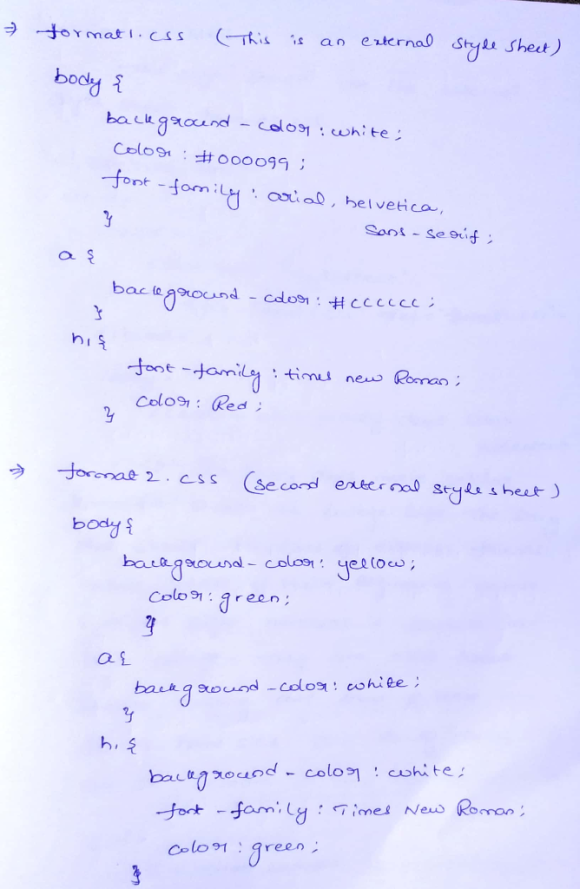 ⇒ format1.css (This is an external style sheet)
body {
background-color: white;
color: #000099;
font-family: arial, helvetica,
sans-serif;
}
a {
background-color: #cccccc;
}
h1 {
font-family: times new Roman;
color: Red;
}
⇒ format2.css (second external style sheet)
body {
background-color: yellow;
color: green;
}
a {
background-color: white;
}
h1 {
background-color: white;
font-family: Times New Roman;
color: green;
}